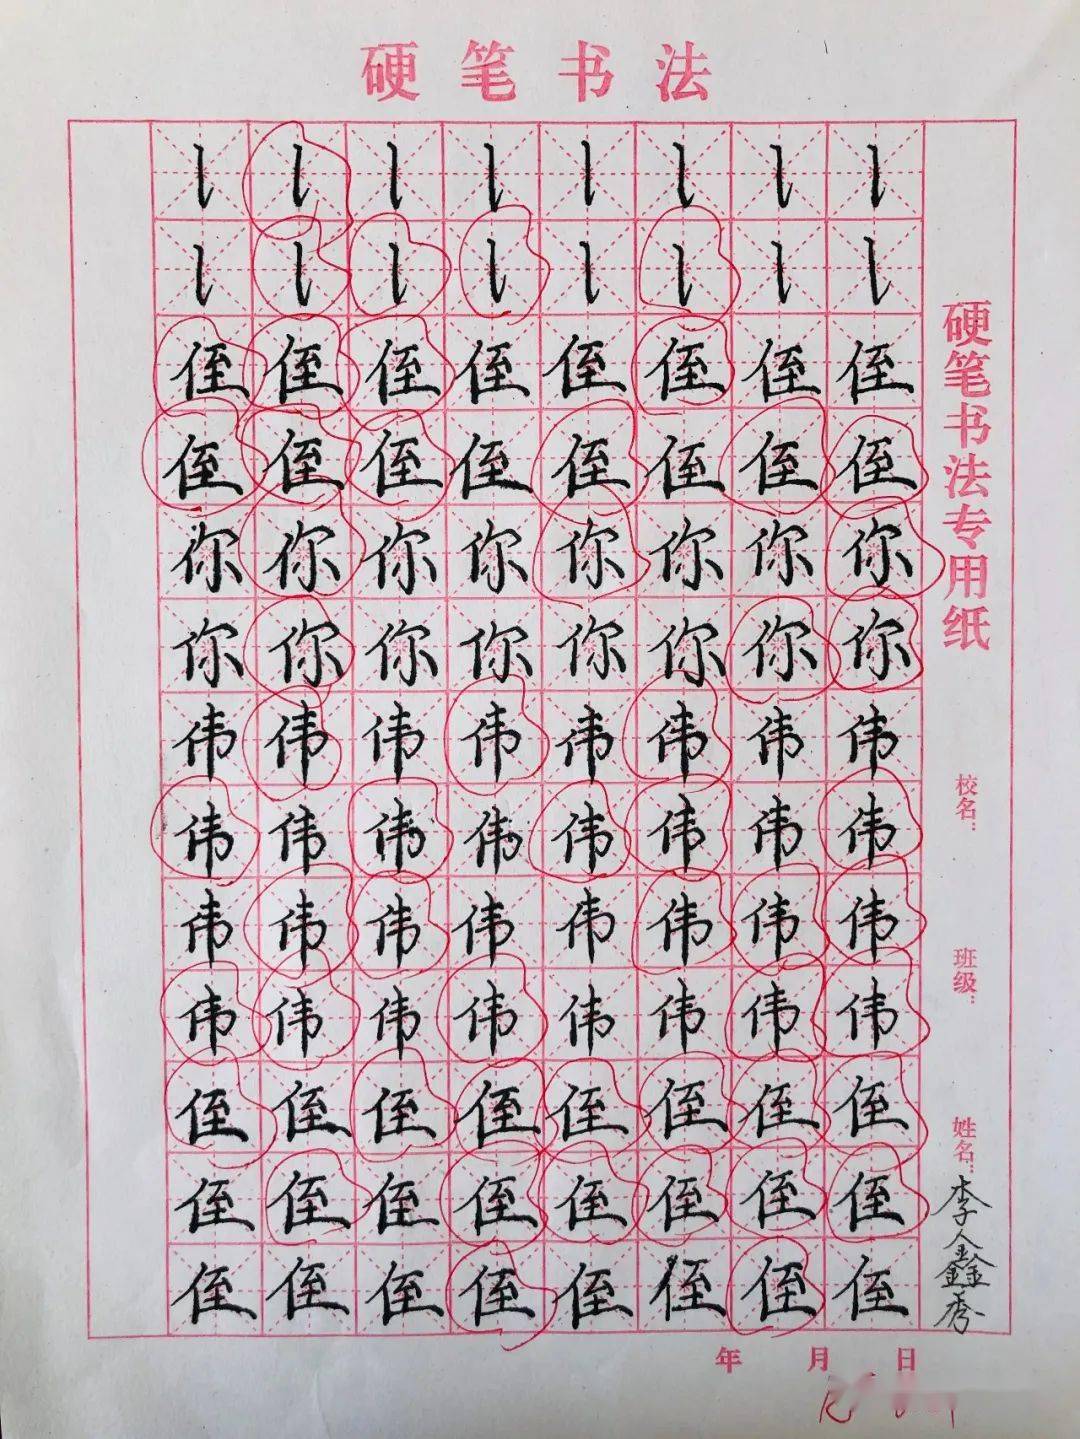 硬笔书法
丨丨丨丨丨丨丨丨
丨丨丨丨丨丨丨丨
侄侄侄侄侄侄侄侄
侄侄侄侄侄侄侄侄
你你你你你你你你
你你你你你你你你
伟伟伟伟伟伟伟伟
伟伟伟伟伟伟伟伟
伟伟伟伟伟伟伟伟
伟伟伟伟伟伟伟伟
侄侄侄侄侄侄侄侄
侄侄侄侄侄侄侄侄
侄侄侄侄侄侄侄侄
硬笔书法专用纸
校名：
班级：
姓名：李鑫秀
年 月 日